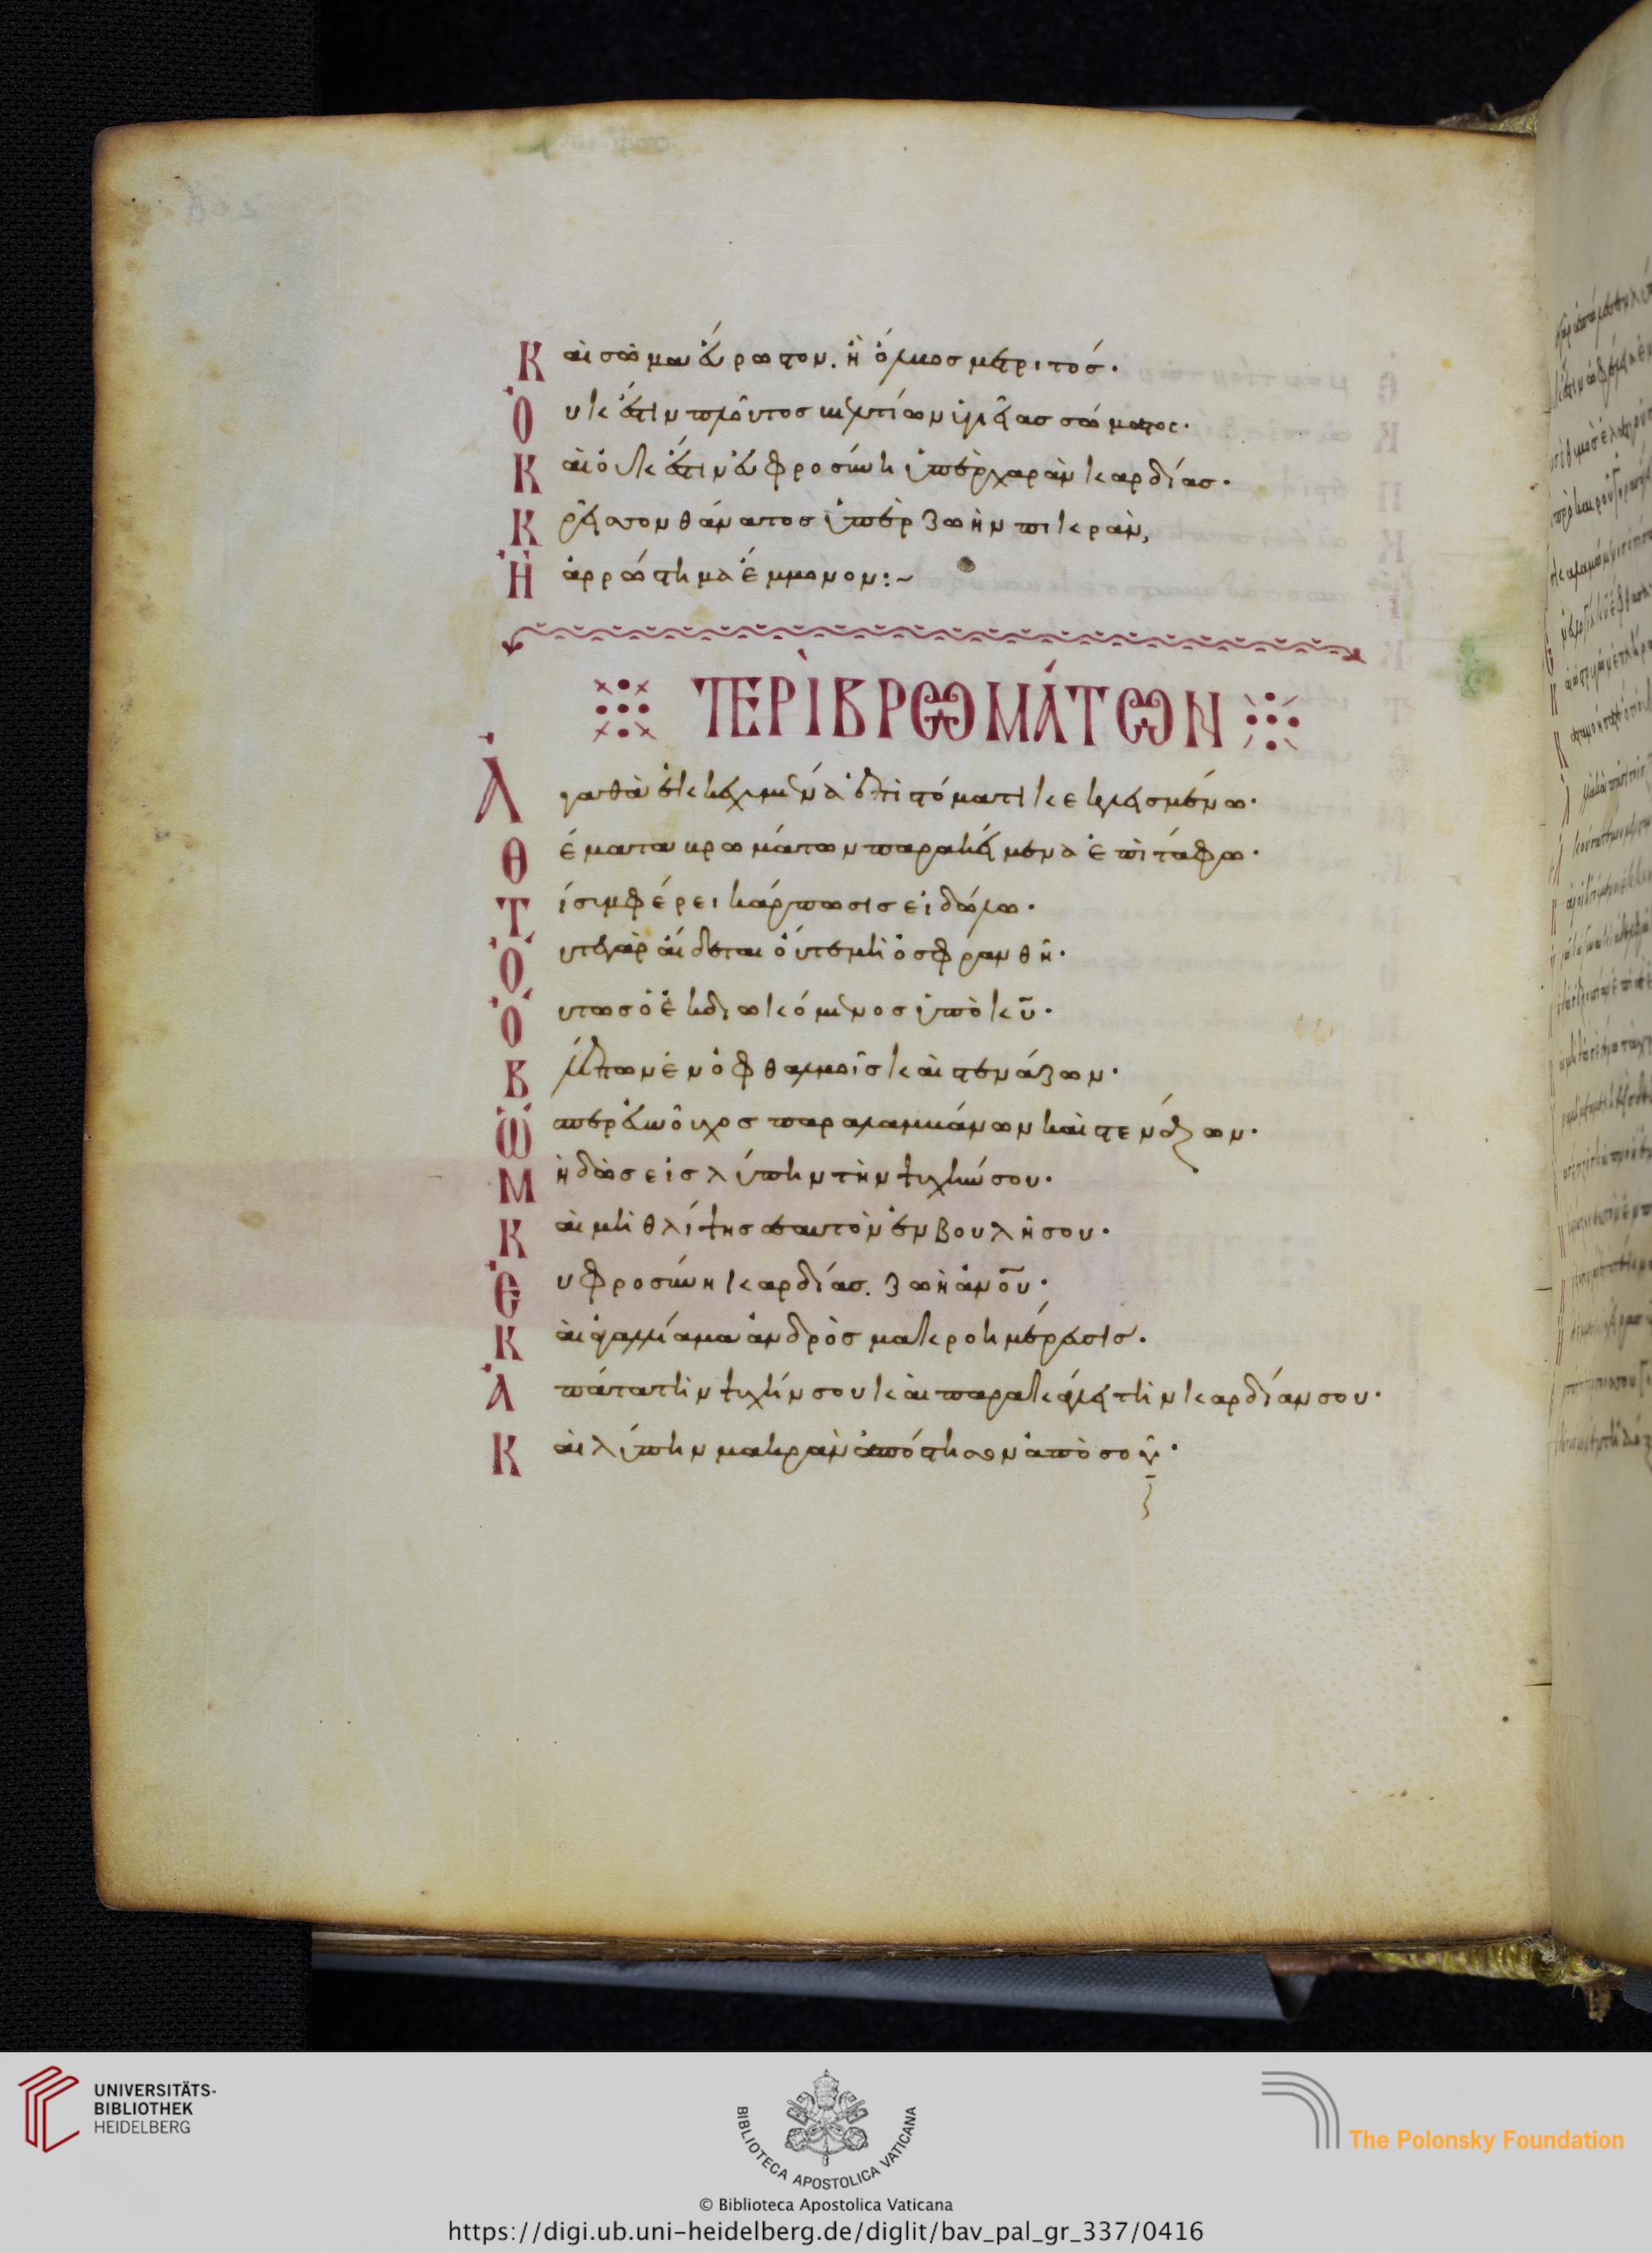 Καὶ σῶμα εὔρωστον. ἢ ὄλβος μέτριτοσ·
Ὀυκ ἔστιν πλοῦτος βελτίων ὑγιείας σώματος·
Καὶ ὀυκ ἔστιν ἐυφροσύνη ὑπὲρ χαρὰν καρδίας·
Κρεῖσσον θάνατος ὑπὲρ ζωὴν πικρὰν,
Ἢ ἀρρώστημα ἔμμονον:~
ΠΕΡῚ ΒΡΩΜΆΤΩΝ
Ἀγαθὰ ἐκκεχυμένα ἐπὶ στόματι κεκλεισμένω·
Θέματα βρωμάτων παρακείμενα ἐπὶ τάφω·
Τί συμφέρει κάρπωσις εἰδώλω·
Ὀυτε γὰρ ἔδεται ὄυτε μὴ ὀσφρανθῆ·
Ὅυτωσ ὁ ἐκδιωκόμενος ὑπὸ κυ·
Βλέπων ἐν ὀφθαλμοῖς καὶ στενάζων·
Ὥσπερ ἐυνοῦχος παραλαμβάνων καὶ στενάζων·
Μὴ δῶς εἰς λύπην τὴν ψυχήν σου·
Καὶ μὴ θλίψης σεαυτὸν ἐν βουλῆ σου·
Ἐυφροσύνη καρδίας. ζωὴ ἀνου·
Καὶ ἀγαλλίαμα ἀνδρὸς μακροημέρευσις·
Ἀπάτα τὴν ψυχήν σου καὶ παρακάλει τὴν καρδίαν σου·
Καὶ λύπην μακρὰν ἀπόστησον ἀπὸ σοῦ·
UNIVERSITÄTS-
BIBLIOTHEK
HEIDELBERG
BIBLIOTECA APOSTOLICA VATICANA
The Polonsky Foundation
© Biblioteca Apostolica Vaticana
https://digi.ub.uni-heidelberg.de/diglit/bav_pal_gr_337/0416